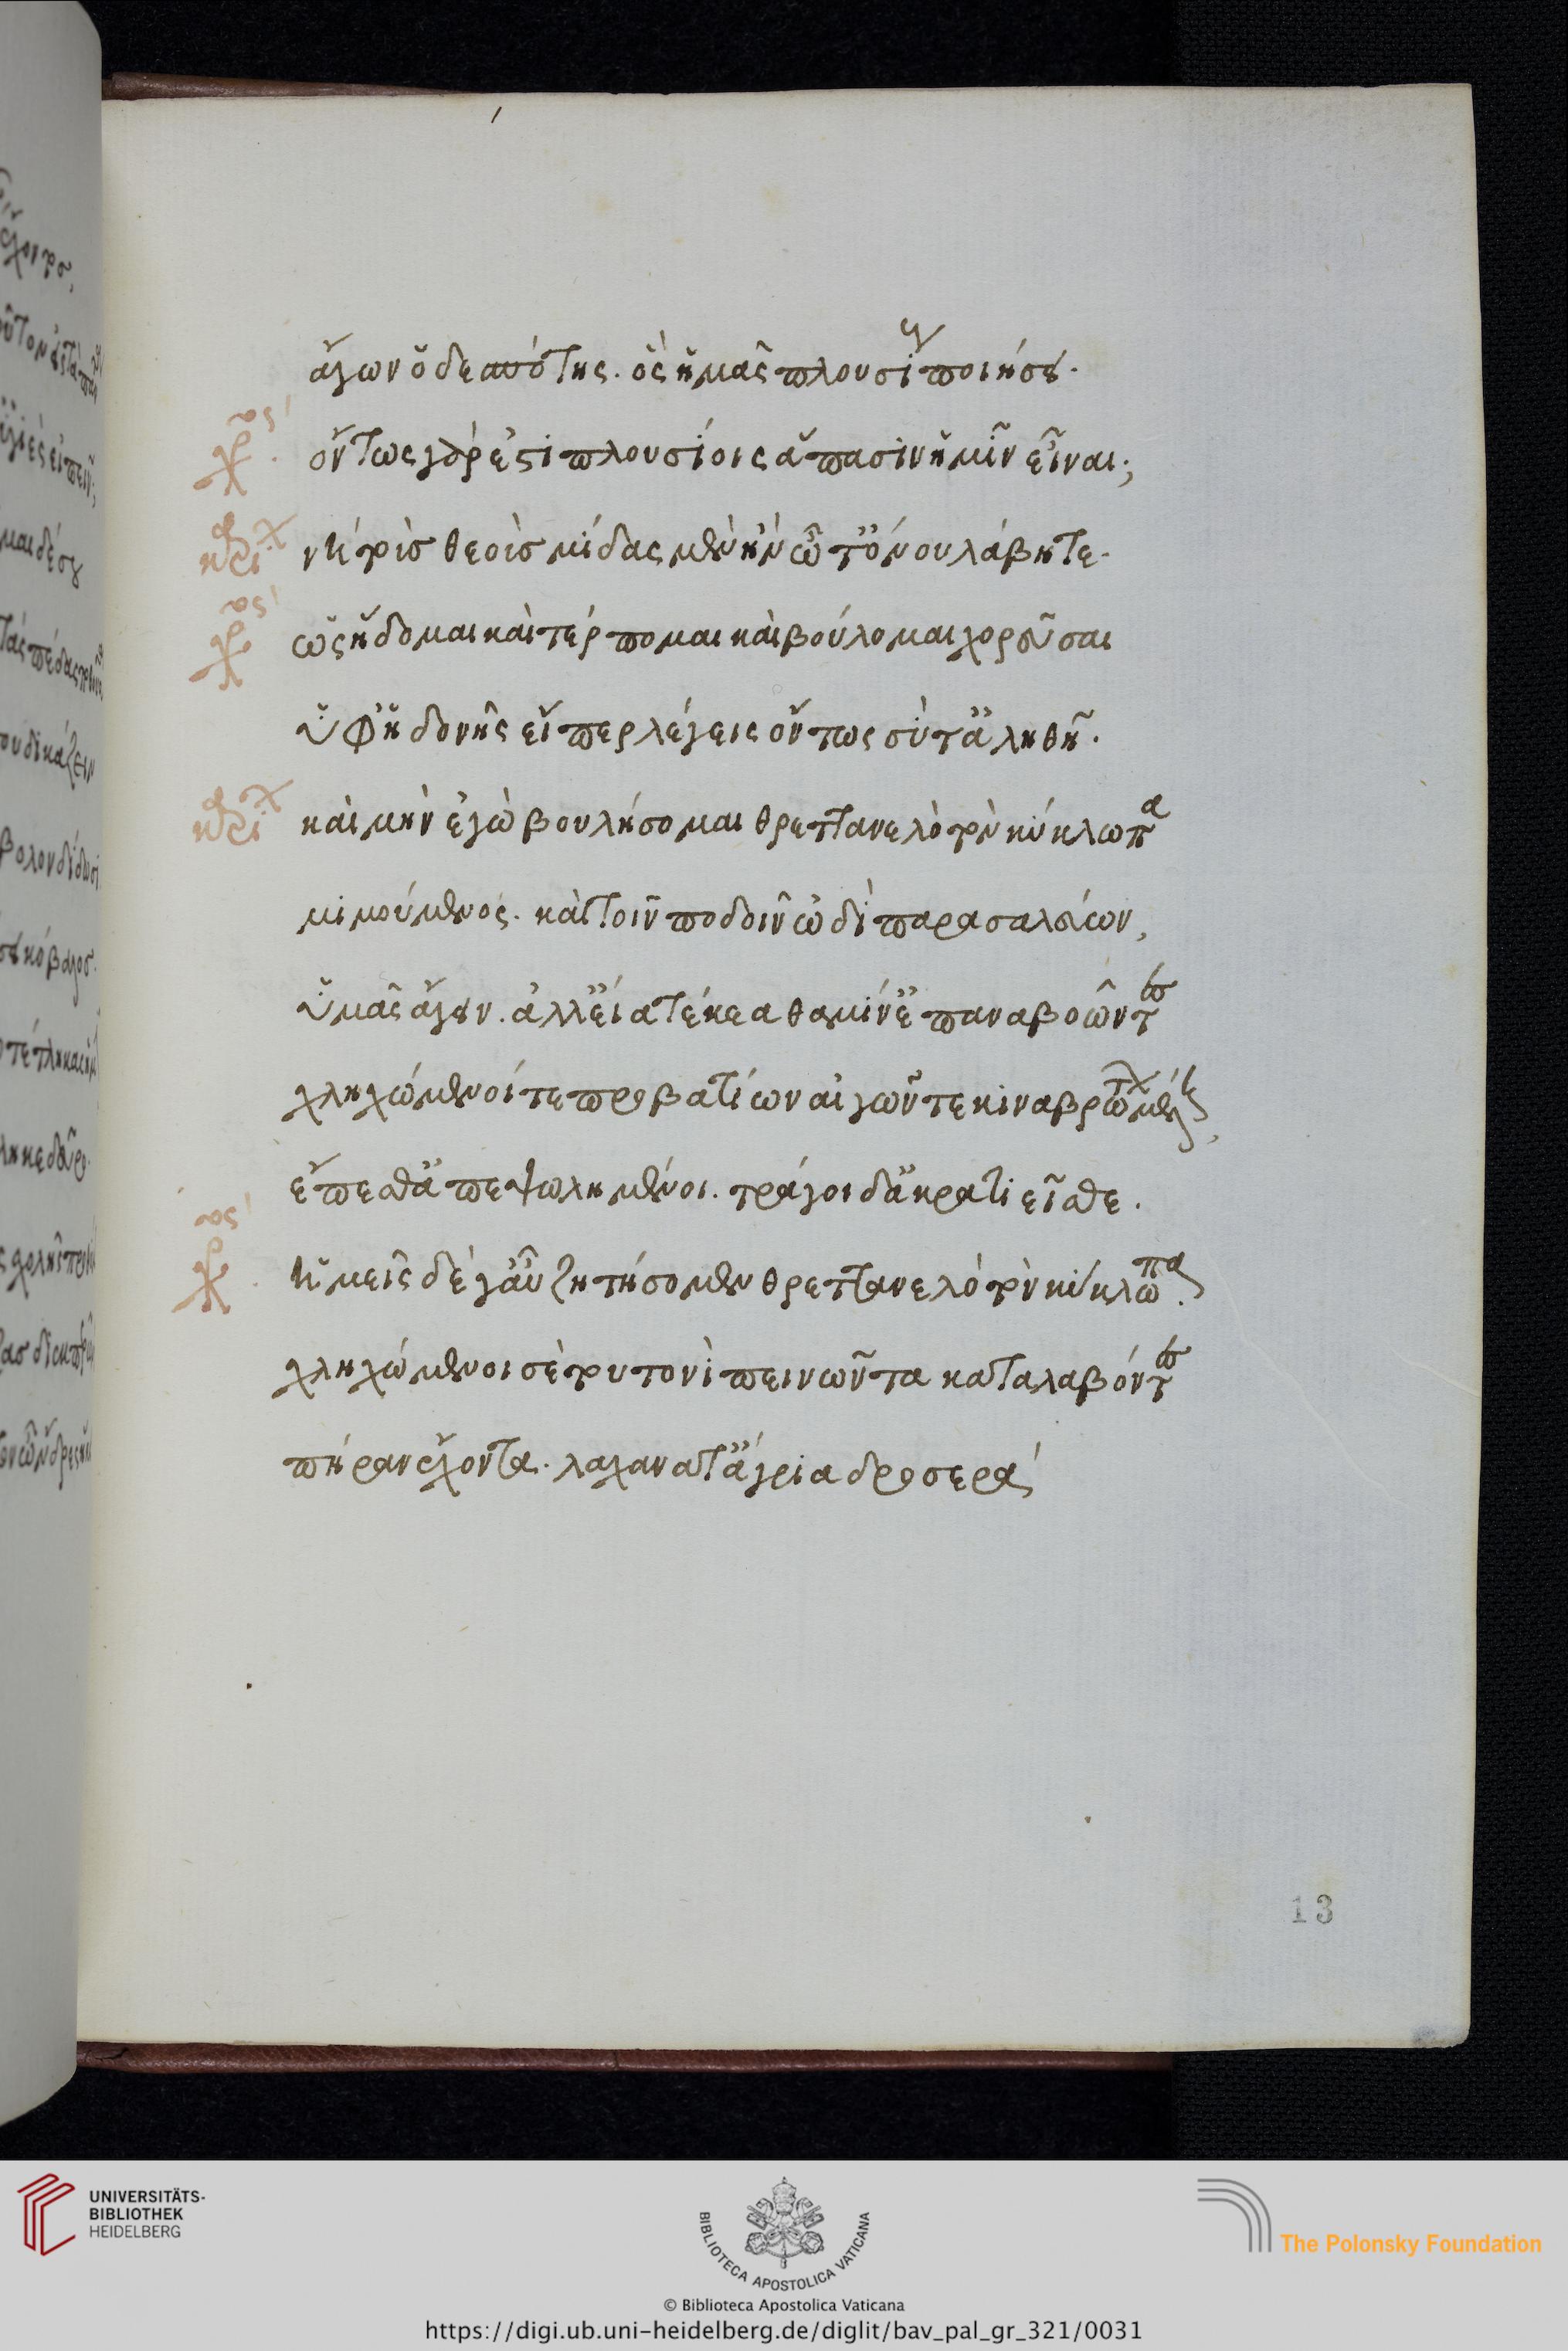 ἄγων ὁ δεσπότης. ὃς ἡμᾶς πλουσίους ποιήσει.
χορός
ὄντως γὰρ ἔστι πλουσίοις ἅπασιν ἡμῖν εἶναι;
καρί
νὴ τοὺς θεοὺς μίδας μὲν ἢν ὦτ' ὄνου λάβητε.
χορός
ὡς ἥδομαι καὶ τέρπομαι καὶ βούλομαι χορεῦσαι
ὑφ' ἡδονῆς εἴπερ λέγεις ὄντως σὺ τἀληθῆ.
καρί
καὶ μὴν ἐγὼ βουλήσομαι θρεττανελὸ τὸν κύκλωπα
μιμούμενος. καὶ τοῖν ποδοῖν ὡδὶ παρασαλεύων,
ὑμᾶς ἄγειν. ἀλλ' εἷα τέκεα θαμίν' ἐπαναβοῶντες
βληχώμενοί τε προβατίων αἰγῶν τε κιναβρώντων μέλη,
ἕπεσθ' ἀπεψωλημένοι. τράγοι δ' ἀκρατιεῖσθε.
χορός
ἡμεῖς δέ γ' αὖ ζητήσομεν θρεττανελὸ τὸν κύκλωπα.
βληχώμενοι σὲ τουτονὶ πεινῶντα καταλαβόντες
πήραν ἔχοντα. λαχανά τ' ἄγρια δροσερά
13
UNIVERSITÄTS-
BIBLIOTHEK
HEIDELBERG
BIBLIOTECA APOSTOLICA VATICANA
The Polonsky Foundation
© Biblioteca Apostolica Vaticana
https://digi.ub.uni-heidelberg.de/diglit/bav_pal_gr_321/0031